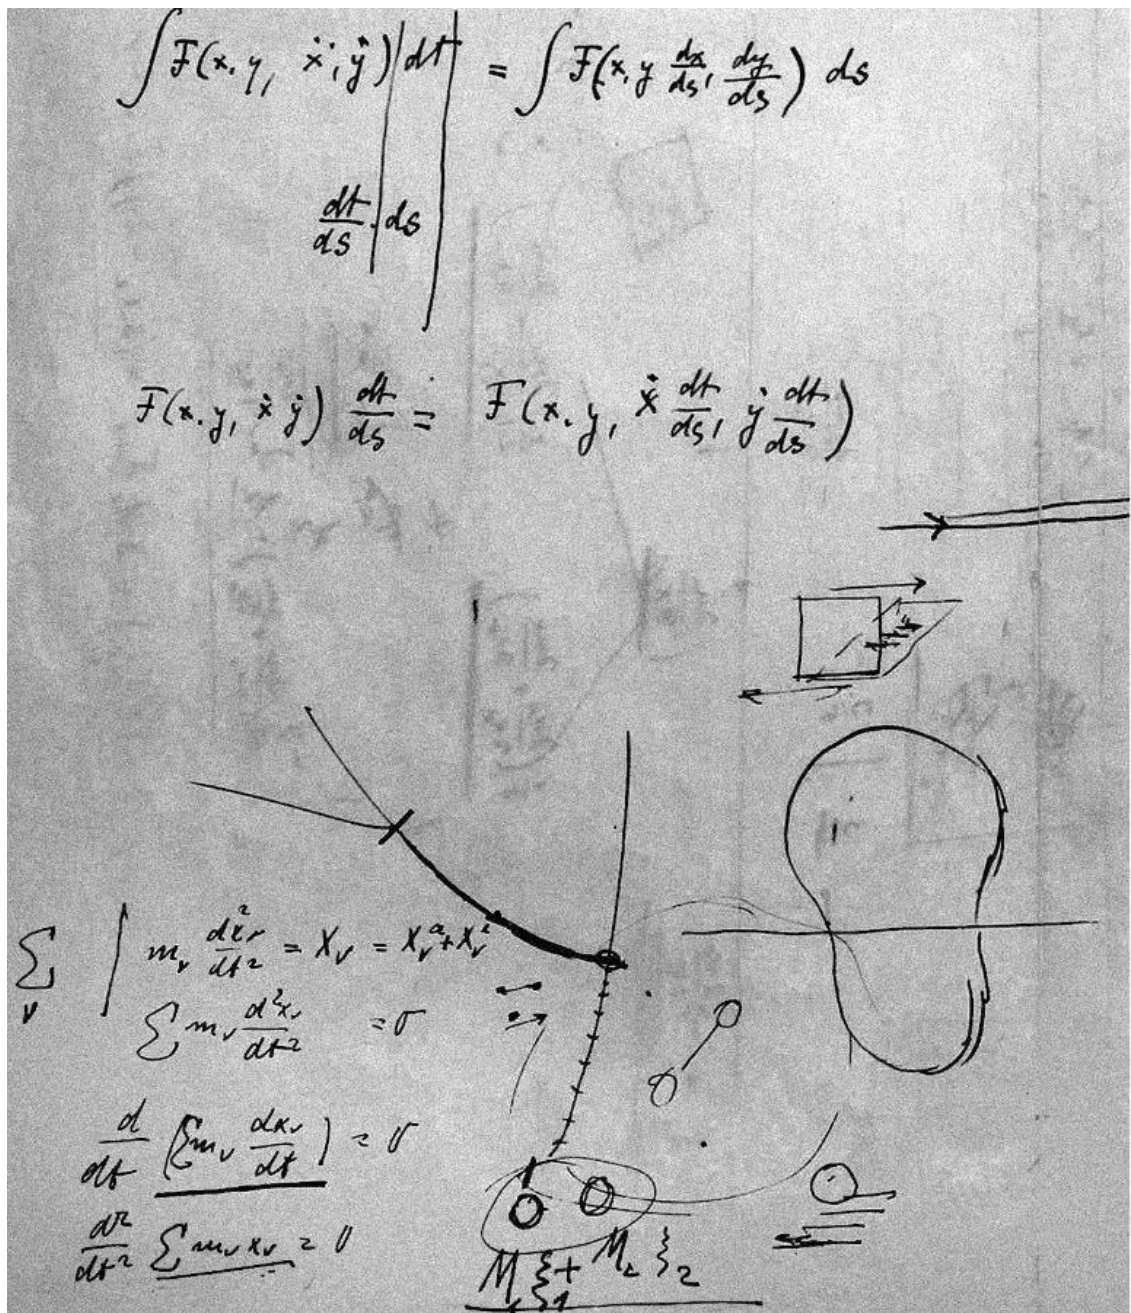 ∫ F(x, y, ẋ, ẏ) dt = ∫ F(x, y dx/ds, dy/ds) ds
dt/ds · ds
F(x, y, ẋ ẏ) dt/ds = F(x, y, ẋ dt/ds, ẏ dt/ds)
∑ν | mν d²xν/dt² = Xν = Xνᵃ + Xνⁱ
∑ mν d²xν/dt² = 0
d/dt (∑ mν dxν/dt) = 0
d²/dt² ∑ mν xν = 0
M₁ ξ₁ + M₂ ξ₂